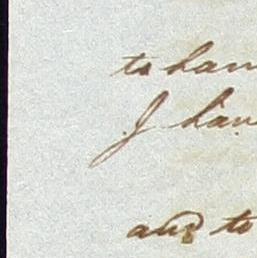 to han
I han
and to